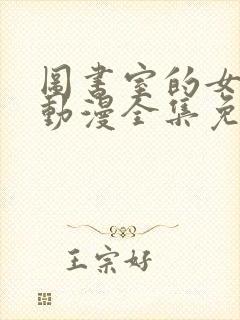 圖書室的女
動漫全集免
王宗好